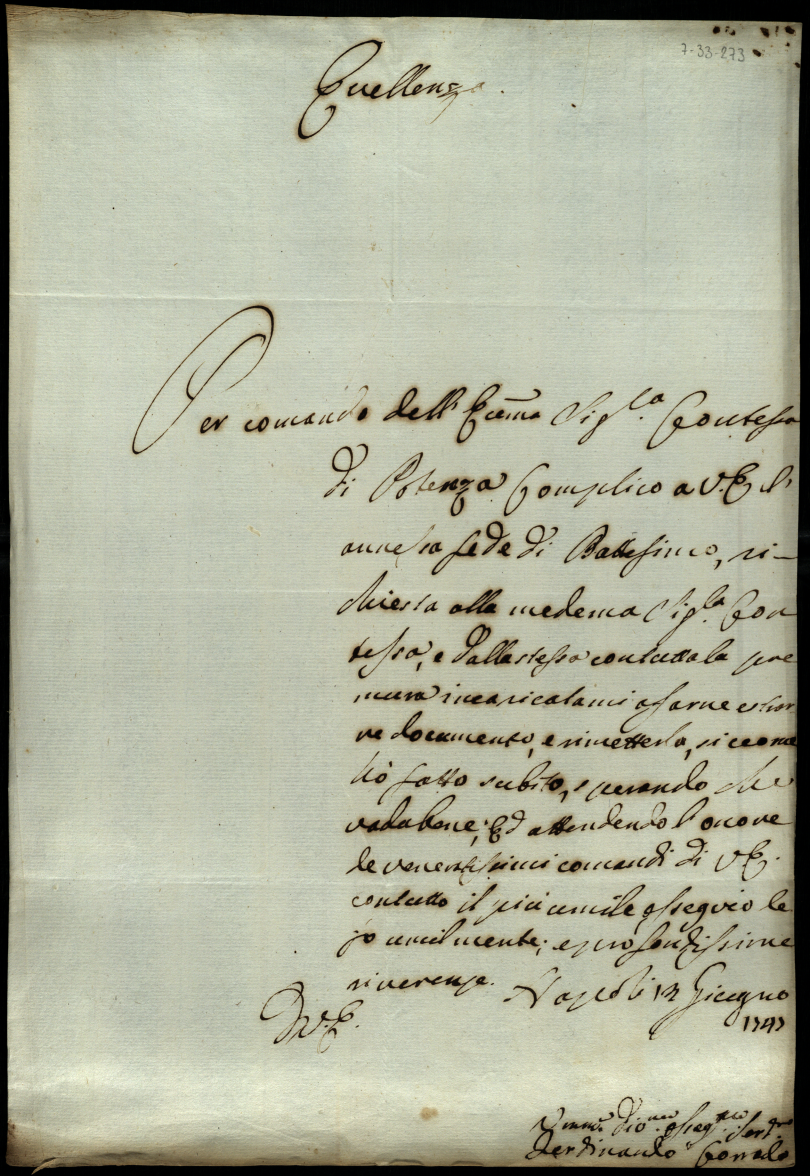 7-33-273
Eccellenza.
Per comando dell' Eccma Sigla. Contessa
di Potenza Complico a V.E. l'
annessa fede di Battesimo, ri-
chiesta alla medema Sigla. Con
tessa, e dalla stessa con tutta la pre
mura incaricatami a farne estrar
re documento, e rimetterlo, siccome
hò fatto subito, sperando che
vada bene; Ed attendendo l'onore
de veneratissimi comandi di V.E.
con tutto il più umile ossequio le
fo umilmente; e profondissime
riverenze. Napoli 12 Giugno
D.V.E.
Ferdinando Corrado